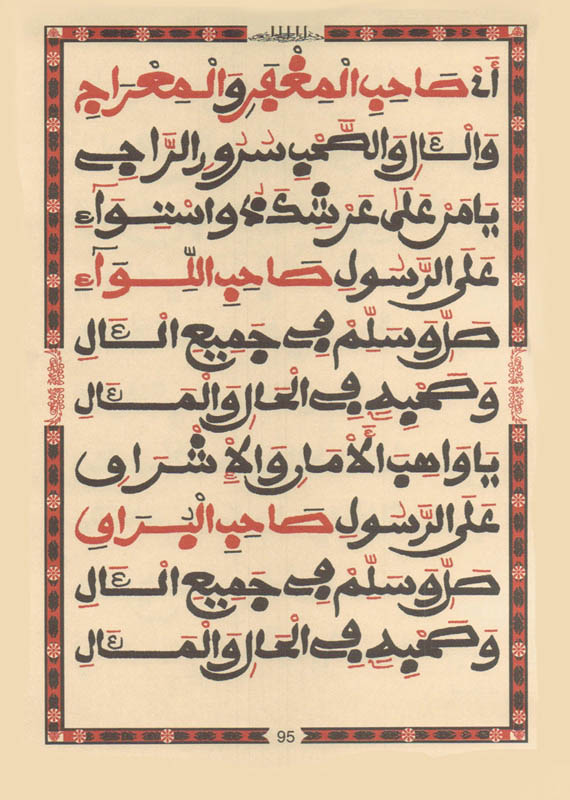 أَيْ صَاحِبِ الْمِغْفَرِ وَالْمِعْرَاجِ
وَالْآلِ وَالصَّحْبِ سُرُورِ الرَّاجِي
يَا مَنْ عَلَى عَرْشِهِ ذُو اسْتِوَآءِ
عَلَى الرَّسُولِ صَاحِبِ اللِّوَآءِ
صَلِّ وَسَلِّمْ فِي جَمِيعِ الْآلِ
وَصَحْبِهِ فِي الْحَالِ وَالْمَآلِ
يَا وَاهِبَ الْأَمَانِ وَالْإِشْرَاقِ
عَلَى الرَّسُولِ صَاحِبِ الْبُرَاقِ
صَلِّ وَسَلِّمْ فِي جَمِيعِ الْآلِ
وَصَحْبِهِ فِي الْحَالِ وَالْمَآلِ
95